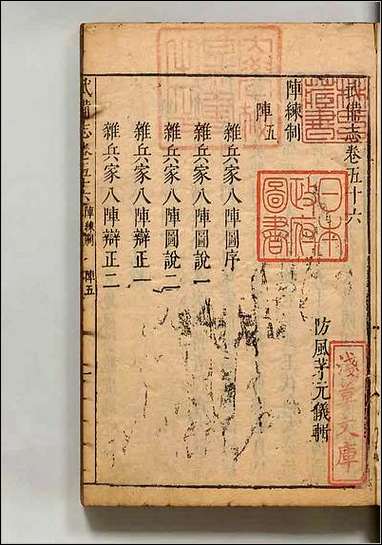 武備志卷五十六
防風茅元儀輯
陣練制
陣五
雜兵家八陣圖序
雜兵家八陣圖說一
雜兵家八陣圖說二
雜兵家八陣辯正一
雜兵家八陣辯正二
武備志 卷五十六 陣練制 陣五
日本
政府
圖書
淺草文庫